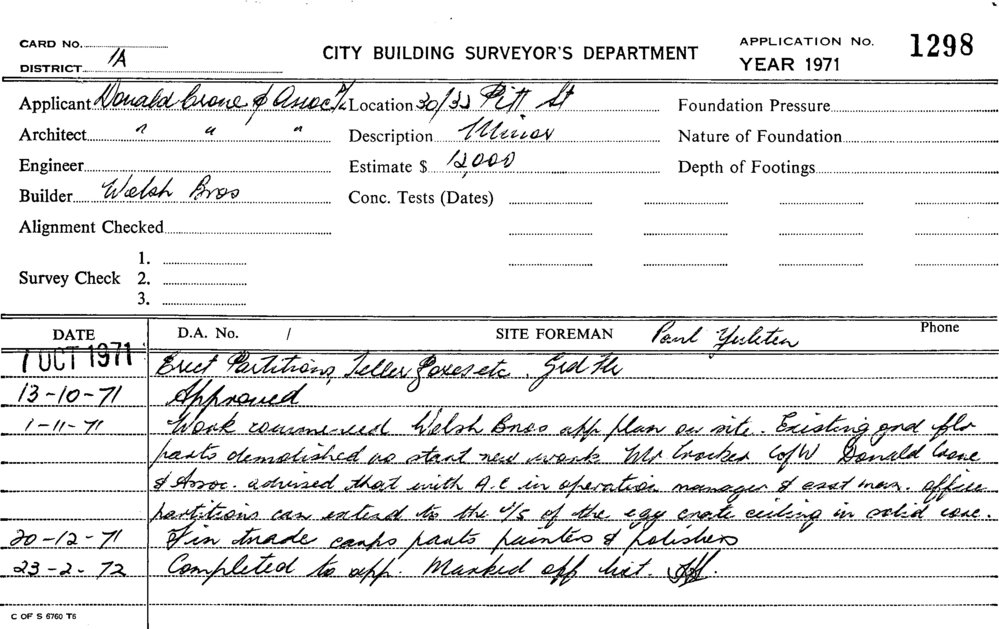 CARD NO.
DISTRICT 1A
CITY BUILDING SURVEYOR'S DEPARTMENT
APPLICATION No. 1298
YEAR 1971
Applicant Donald Crone & Assoc P/L Location 30/32 Pitt St Foundation Pressure
Architect " " " Description Minor Nature of Foundation
Engineer Estimate $ 12,000 Depth of Footings
Builder Welsh Bros Conc. Tests (Dates)
Alignment Checked
1.
Survey Check 2.
3.
DATE D.A. No. / SITE FOREMAN Paul Phone
7 OCT 1971 Erect Partitions, Teller Boxes etc. Grd Flr
13-10-71 Approved
1-11-71 Work commenced Welsh Bros app plan on site. Existing grd flr
parts demolished no start new work Mr Crocker CofW Donald Crone
& Assoc. advised that with A.C in operation manager & asst man. office
partitions can extend to the u/s of the egg crate ceiling in solid conc.
20-12-71 Fin trade carps parts painters & polishers
23-2-72 Completed to app. Marked off list.
C OF S 6760 T6